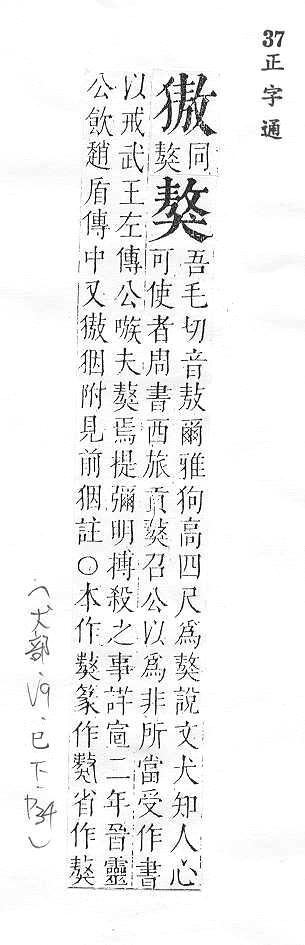 37
正字通
獓
同
獒
獒
吾毛切音敖爾雅狗高四尺為獒說文犬知人心
可使者周書西旅貢獒召公以為非所當受作書
以戒武王左傳公嗾夫獒焉提彌明搏殺之事詳宣二年晉靈
公飲趙盾傳中又獓㹶附見前㹶註○本作獒篆作省作獒
(犬部.V9.巳下.p34)